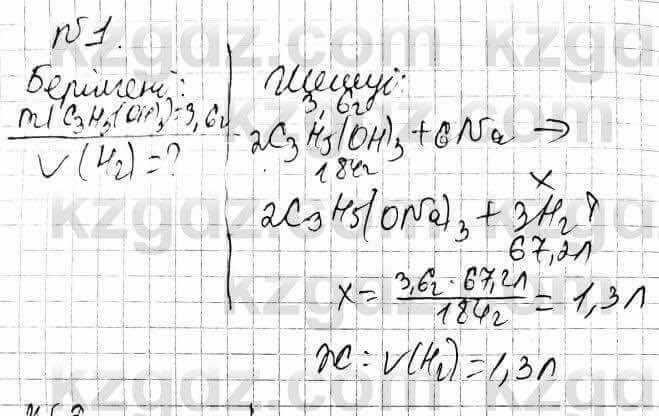 №1.
Берілгені:
m(C₃H₅(OH)₃)=3,6г
V(H₂)=?
Шешуі:
3,6г
2C₃H₅(OH)₃+6Na →
184г
x
2C₃H₅(ONa)₃ + 3H₂↑
67,2л
x = 3,6г · 67,2л / 184г = 1,3л
Ж: V(H₂)=1,3л
kzgdz.com